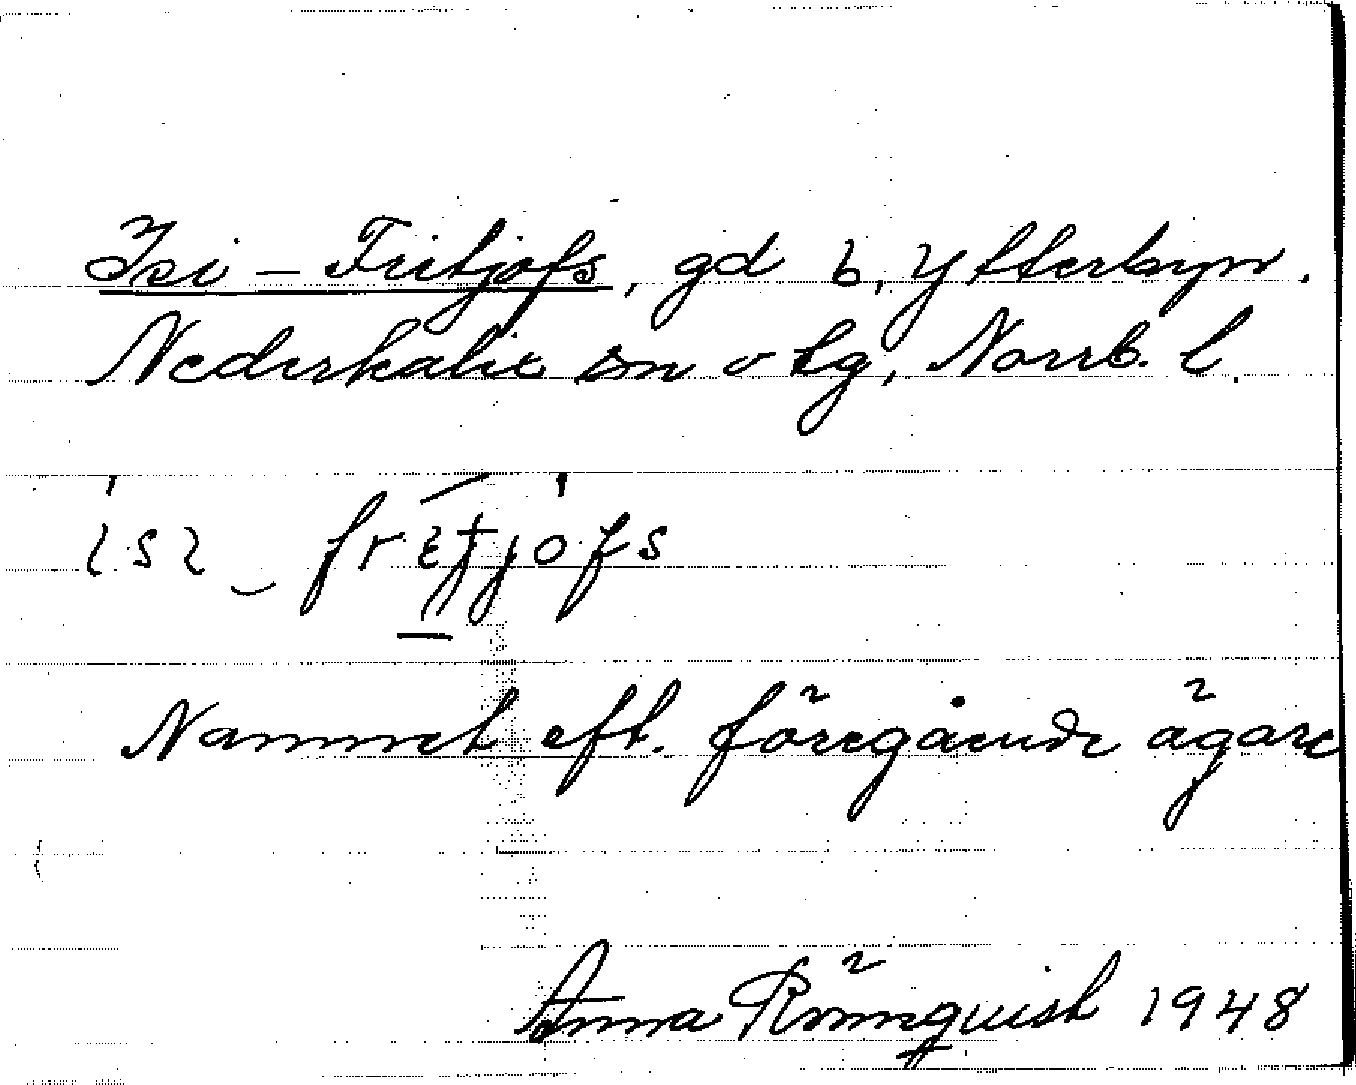 Isi - Fritjofs, gd i, Ytterbyn.
Nederkalix sn o tg, Norrb. l.
Namnet eft. föregående ägare
Anna Rönnquist 1948